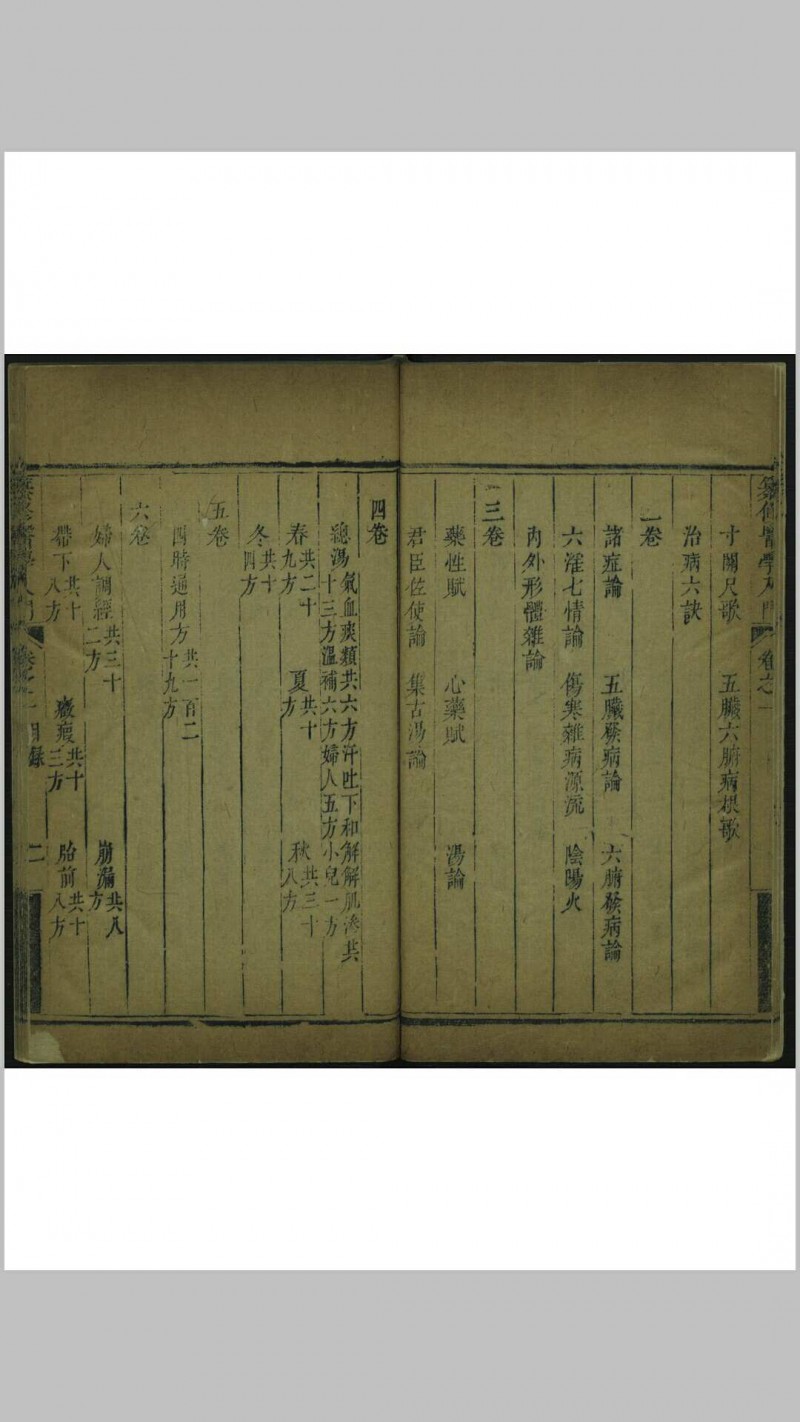 卷之一
寸關尺歌　五臟六腑病根歌
治病六訣
二卷
諸症論　五臟候病論　六腑候病論
六淫七情論　傷寒雜病源流　陰陽火
內外形體雜論
三卷
藥性賦　心藥賦　湯論
君臣佐使論　集古湯論
四卷
總湯 氣血痰類共六方汗吐下和解解肌湊共十三方溫補六方婦人五方小兒一方
春 共二十九方　夏 共十方　秋 共三十八方
冬 共十四方
五卷
四時通用方 共一百二十九方
六卷
婦人調經 共三十二方　崩漏 共八方
帶下 共十八方　癥瘕 共十三方　胎前 共十八方
目錄　二